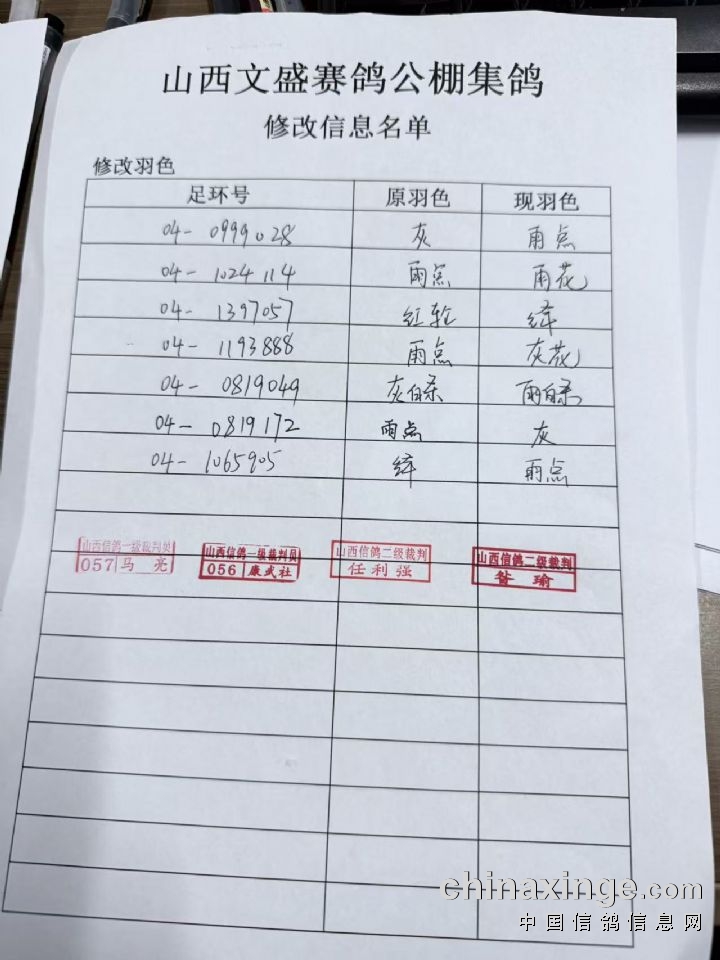 山西文盛赛鸽公棚集鸽
修改信息名单
修改羽色
足环号 原羽色 现羽色
04- 0999028 灰 雨点
04- 1024114 雨点 雨花
04- 1397057 红轮 绛
04- 1193888 雨点 灰花
04- 0819049 灰白条 雨白条
04- 0819172 雨点 灰
04- 1065905 绛 雨点
山西信鸽一级裁判员 山西信鸽一级裁判员 山西信鸽二级裁判 山西信鸽二级裁判
057 马亮 056 康武社 任利强 昝瑜
chinaxinge.com
中国信鸽信息网